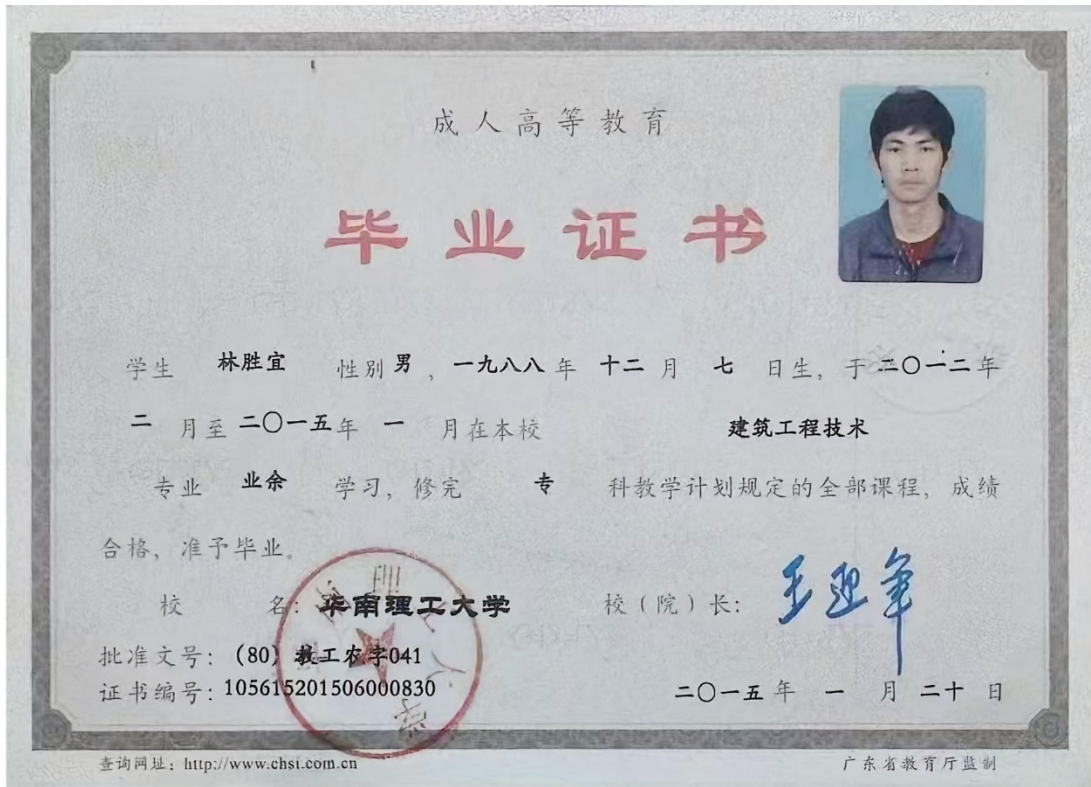 成人高等教育
毕业证书
学生 林胜宜 性别 男 ，一九八八 年 十二 月 七 日生，于 二〇一二 年
二 月至 二〇一五 年 一 月在本校 建筑工程技术
专业 业余 学习，修完 专 科教学计划规定的全部课程，成绩
合格，准予毕业。
校 名：华南理工大学 校（院）长：
批准文号：（80）教工农字041
证书编号：105615201506000830 二〇一五 年 一 月 二十 日
查询网址：http://www.chsi.com.cn 广东省教育厅监制